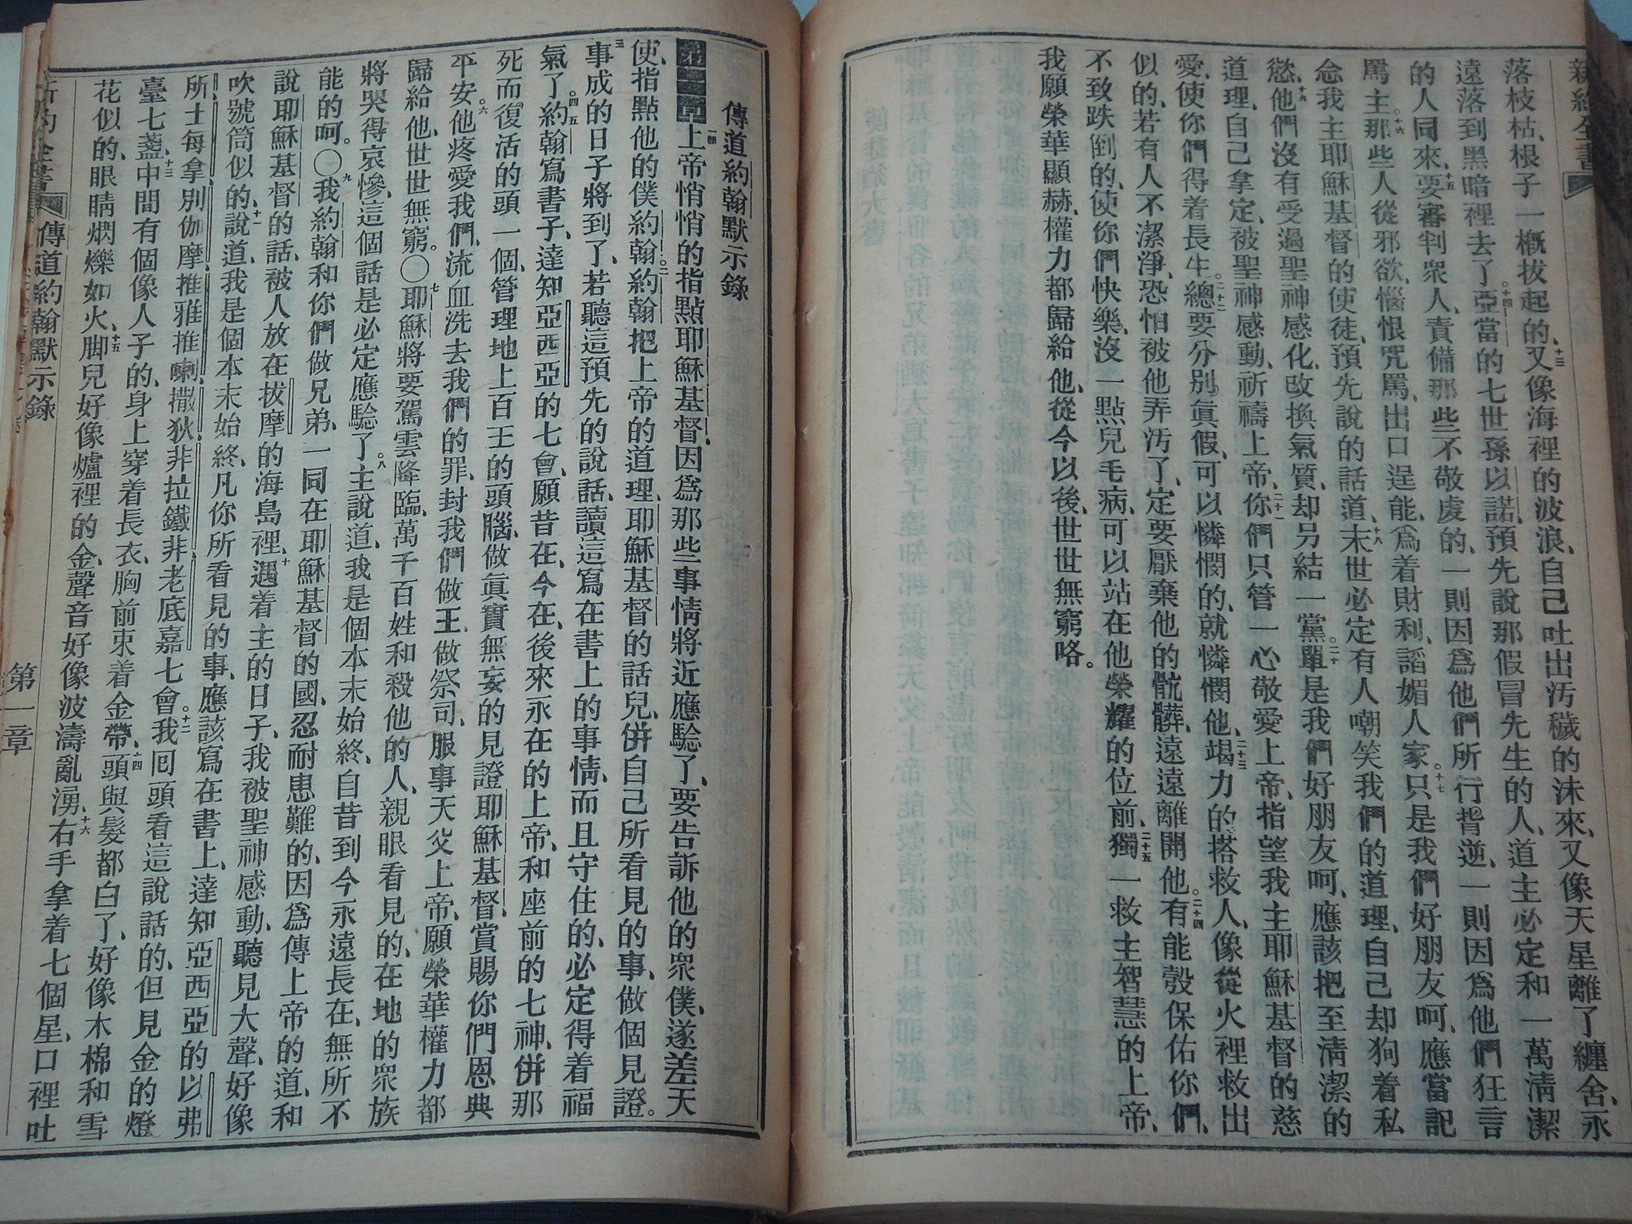 新約全書
落枝枯、根子一概拔起的、十三又像海裡的波浪、自己吐出汚穢的沫來、又像天星離了纏舍、永
遠落到黑暗裡去了。十四亞當的七世孫以諾、預先說那假冒先生的人、道主必定和一萬清潔
的人同來、十五要審判眾人、責備那些不敬虔的、一則因爲他們所行悖逆、一則因爲他們狂言
罵主、十六那些人從邪欲、惱恨咒罵、出口逞能、爲着財利、謟媚人家。十七只是我們好朋友呵、應當記
念我主耶穌基督的使徒、預先說的話、道、十八末世必定有人嘲笑我們的道理、自己却狥着私
慾、十九他們沒有受過聖神感化、改換氣質、却另結一黨。二十單是我們好朋友呵、應該把至清潔的
道理、自己拿定、被聖神感動、祈禱上帝、二十一你們只管一心敬愛上帝、指望我主耶穌基督的慈
愛、使你們得着長生。二十二總要分別眞假、可以憐憫的、就憐憫他、二十三竭力的搭救人、像從火裡救出
似的、若有人不潔淨、恐怕被他弄汚了、定要厭棄他的骯髒、遠遠離開他。二十四有能彀保佑你們、
不致跌倒的、使你們快樂、沒一點兒毛病、可以站在他榮耀的位前、二十五獨一救主智慧的上帝、
我願榮華顯赫、權力都歸給他、從今以後、世世無窮咯。
傳道約翰默示錄
第一章 一節上帝悄悄的指點耶穌基督、因爲那些事情將近應驗了、要告訴他的衆僕、遂差天
使、指點他的僕約翰。二約翰把上帝的道理、耶穌基督的話兒、併自己所看見的事、做個見證。
三事成的日子將到了、若聽這預先的說話、讀這寫在書上的事情、而且守住的、必定得着福
氣了。四五約翰寫書子、達知亞西亞的七會、願昔在、今在、後來永在的上帝、和座前的七神、併那
死而復活的頭一個、管理地上百王的頭腦、做眞實無妄的見證耶穌基督、賞賜你們恩典
平安。六他疼愛我們、流血洗去我們的罪、封我們做王、做祭司、服事天父上帝、願榮華權力都
歸給他、世世無窮。〇七耶穌將要駕雲降臨、萬千百姓和殺他的人、親眼看見的、在地的衆族
將哭得哀慘、這個話是必定應驗了。八主說道、我是個本末始終、自昔到今永遠長在、無所不
能的呵。〇九我約翰和你們做兄弟、一同在耶穌基督的國、忍耐患難的、因爲傳上帝的道、和
說耶穌基督的話、被人放在拔摩的海島裡、十遇着主的日子、我被聖神感動、聽見大聲、好像
吹號筒似的、十一說道、我是個本末始終、凡你所看見的事、應該寫在書上、達知亞西亞的以弗
所、士每拿、別伽摩、推雅推喇、撒狄、非拉鐵非、老底嘉七會。十二我囘頭看這說話的、但見金的燈
臺七盞、十三中間有個像人子的、身上穿着長衣、胸前束着金帶、十四頭與髮都白了、好像木棉和雪
花似的、眼睛烱爍如火、十五脚兒好像爐裡的金、聲音好像波濤亂湧、十六右手拿着七個星、口裡吐
新約全書 傳道約翰默示錄
第一章